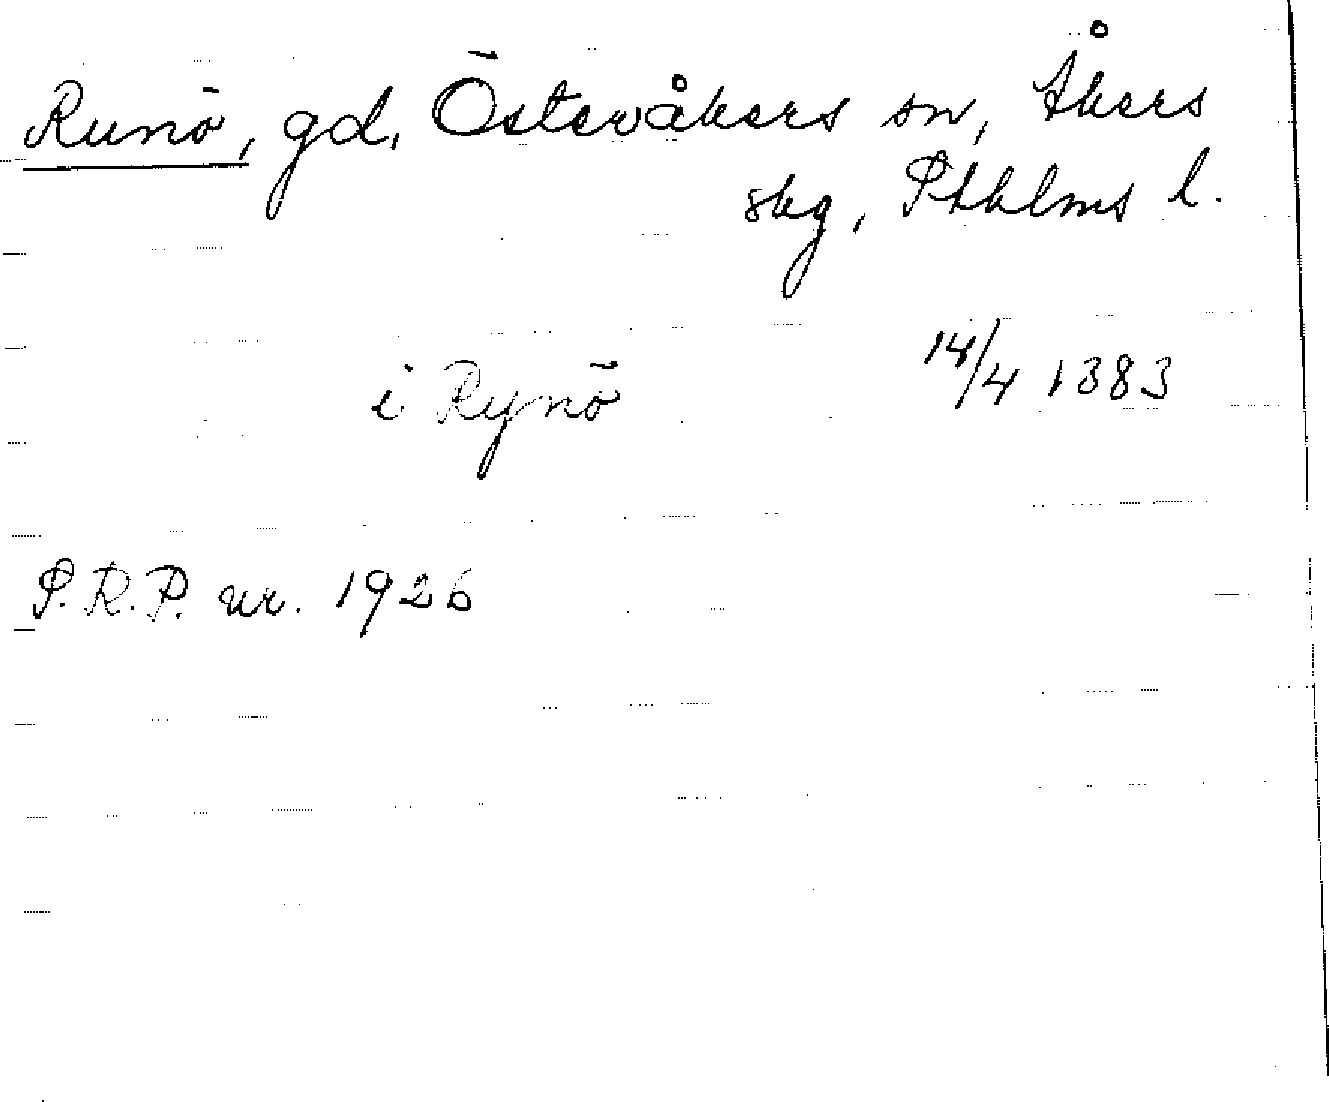 Runö, gd, Österåkers sn, Åkers
skg, Sthlms l.
i Rynö 14/4 1383
S.R.P. nr. 1926